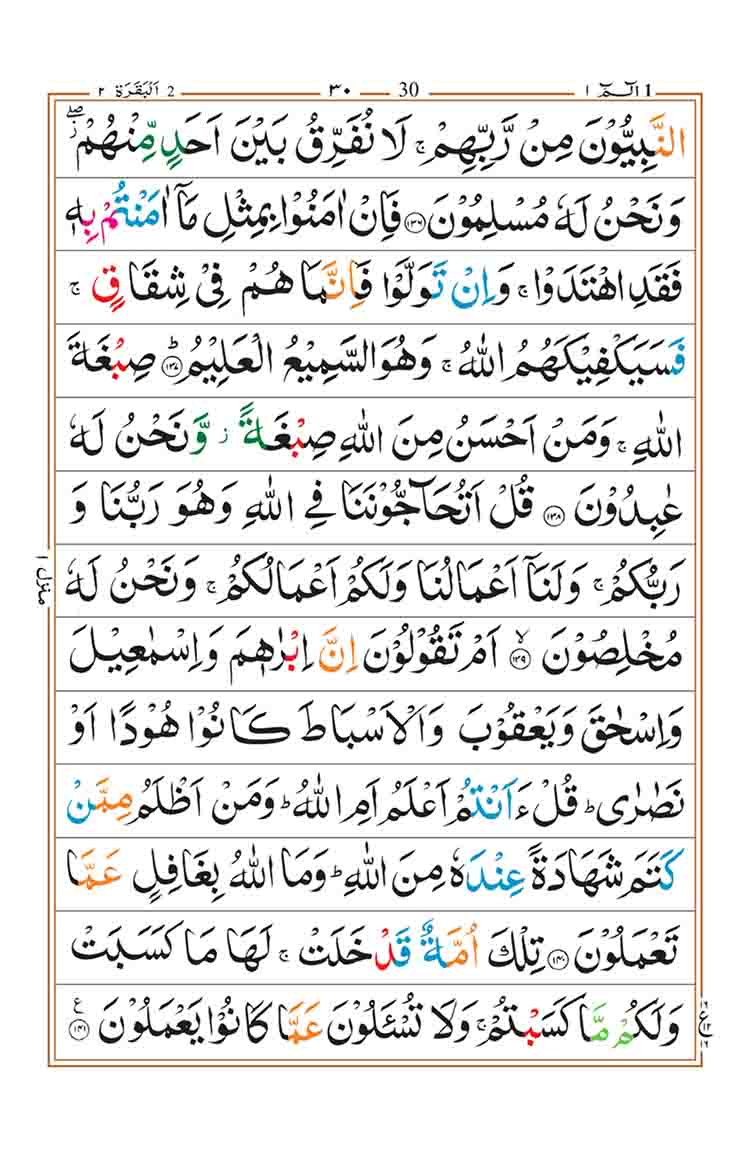 1 الٓـمّٓ ١ 30 ٣٠ 2 اَلْبَقَرَة ٢
النَّبِيُّوْنَ مِنْ رَّبِّهِمْ ۚ لَا نُفَرِّقُ بَيْنَ اَحَدٍ مِّنْهُمْ ۖ ز
وَنَحْنُ لَهٗ مُسْلِمُوْنَ ۝۱۳۶ فَاِنْ اٰمَنُوْا بِمِثْلِ مَاۤ اٰمَنْتُمْ بِهٖ
فَقَدِ اهْتَدَوْا ۚ وَاِنْ تَوَلَّوْا فَاِنَّمَا هُمْ فِيْ شِقَاقٍ ۚ
فَسَيَكْفِيْكَهُمُ اللّٰهُ ۚ وَهُوَ السَّمِيْعُ الْعَلِيْمُ ؕ ۝۱۳۷ صِبْغَةَ
اللّٰهِ ۚ وَمَنْ اَحْسَنُ مِنَ اللّٰهِ صِبْغَةً ز وَّنَحْنُ لَهٗ
عٰبِدُوْنَ ۝۱۳۸ قُلْ اَتُحَآجُّوْنَنَا فِي اللّٰهِ وَهُوَ رَبُّنَا وَ
رَبُّكُمْ ۚ وَلَنَاۤ اَعْمَالُنَا وَلَكُمْ اَعْمَالُكُمْ ۚ وَنَحْنُ لَهٗ
مُخْلِصُوْنَ ۙ ۝۱۳۹ اَمْ تَقُوْلُوْنَ اِنَّ اِبْرٰهٖمَ وَاِسْمٰعِيْلَ
وَاِسْحٰقَ وَيَعْقُوْبَ وَالْاَسْبَاطَ كَانُوْا هُوْدًا اَوْ
نَصٰرٰى ؕ قُلْ ءَاَنْتُمْ اَعْلَمُ اَمِ اللّٰهُ ؕ وَمَنْ اَظْلَمُ مِمَّنْ
كَتَمَ شَهَادَةً عِنْدَهٗ مِنَ اللّٰهِ ؕ وَمَا اللّٰهُ بِغَافِلٍ عَمَّا
تَعْمَلُوْنَ ۝۱۴۰ تِلْكَ اُمَّةٌ قَدْ خَلَتْ ۚ لَهَا مَا كَسَبَتْ
وَلَكُمْ مَّا كَسَبْتُمْ ۚ وَلَا تُسْئَلُوْنَ عَمَّا كَانُوْا يَعْمَلُوْنَ ۝۱۴۱ ع
منزل ١
ع